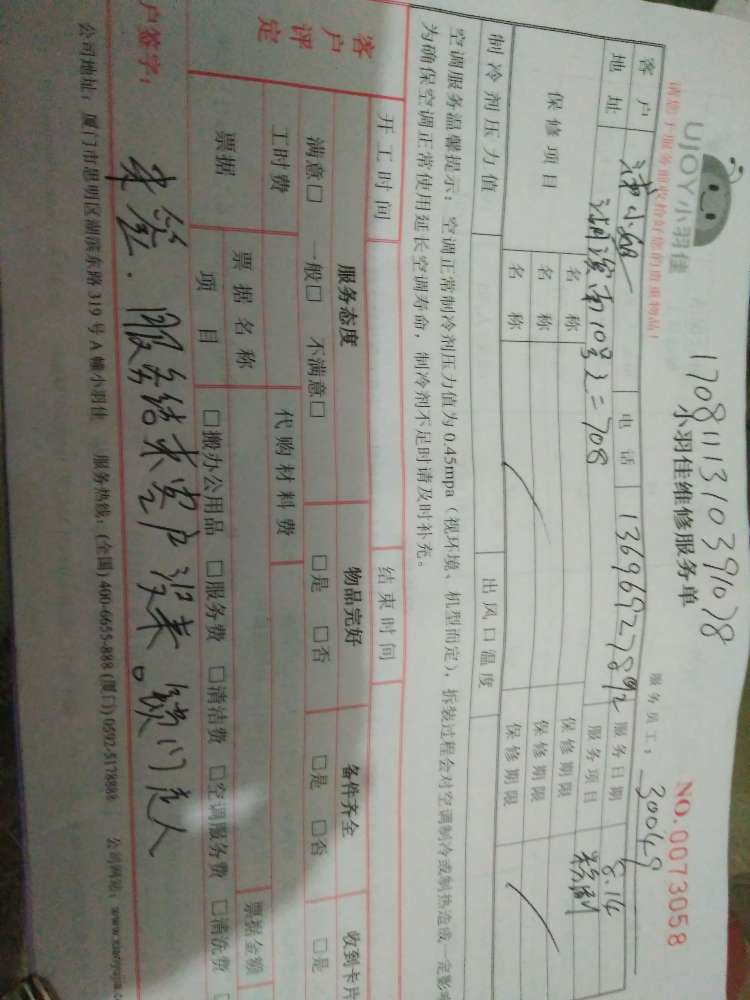 1708111310391078
UJOY小羽佳
小羽佳维修服务单
NO.0073058
请您了服务前收拾好您的贵重物品！
服务员工： 30049
客户
小姐
电话
13696927892
服务日期
8.14
地址
湖滨南10号之二708
服务项目
粉刷
保修项目
名称
保修期限
名称
保修期限
名称
保修期限
制冷剂压力值
出风口温度
空调服务温馨提示：空调正常制冷剂压力值为0.45mpa（视环境、机型而定），拆装过程会对空调制冷或制热造成一定影响
为确保空调正常使用延长空调寿命，制冷剂不足时请及时补充。
开工时间
结束时间
客户评定
服务态度
物品完好
备件齐全
收到卡片
满意□ 一般□ 不满意□
□是 □否
□是 □否
□是
工时费
代购材料费
票据
票据名称
票据金额
项目
□搬办公用品 □服务费 □清洁费 □空调服务费 □清洗费
户签字：
未签．服务结束客户没来。锁门走人
公司地址：厦门市思明区湖滨东路319号A幢小羽佳 服务热线：(全国)400-6655-888 (厦门)0592-5178888 公司网站：